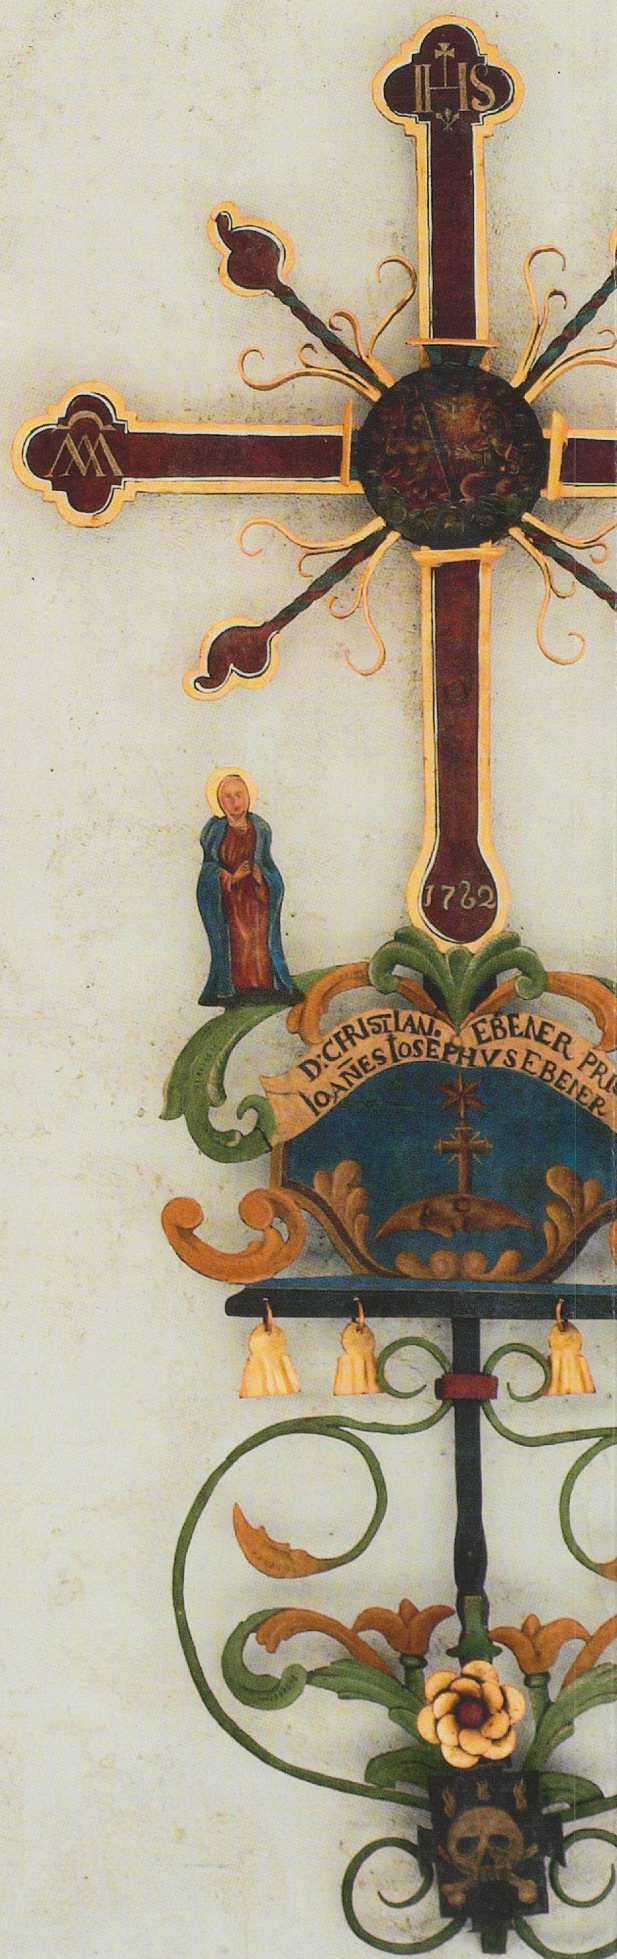 IHS
MA
1782
D: CHRISTIAN. EBENER PRI
IOAÑES IOSEPHVS EBENER